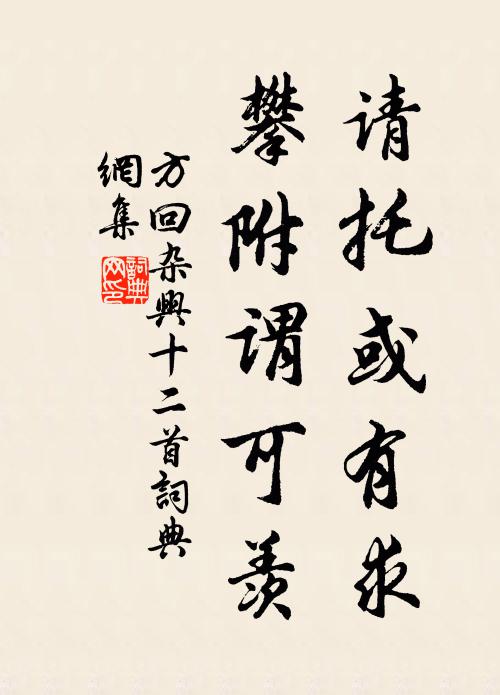 请托或有求
攀附谓可羡
方回杂兴十二首詞典
網集
詞典
网印